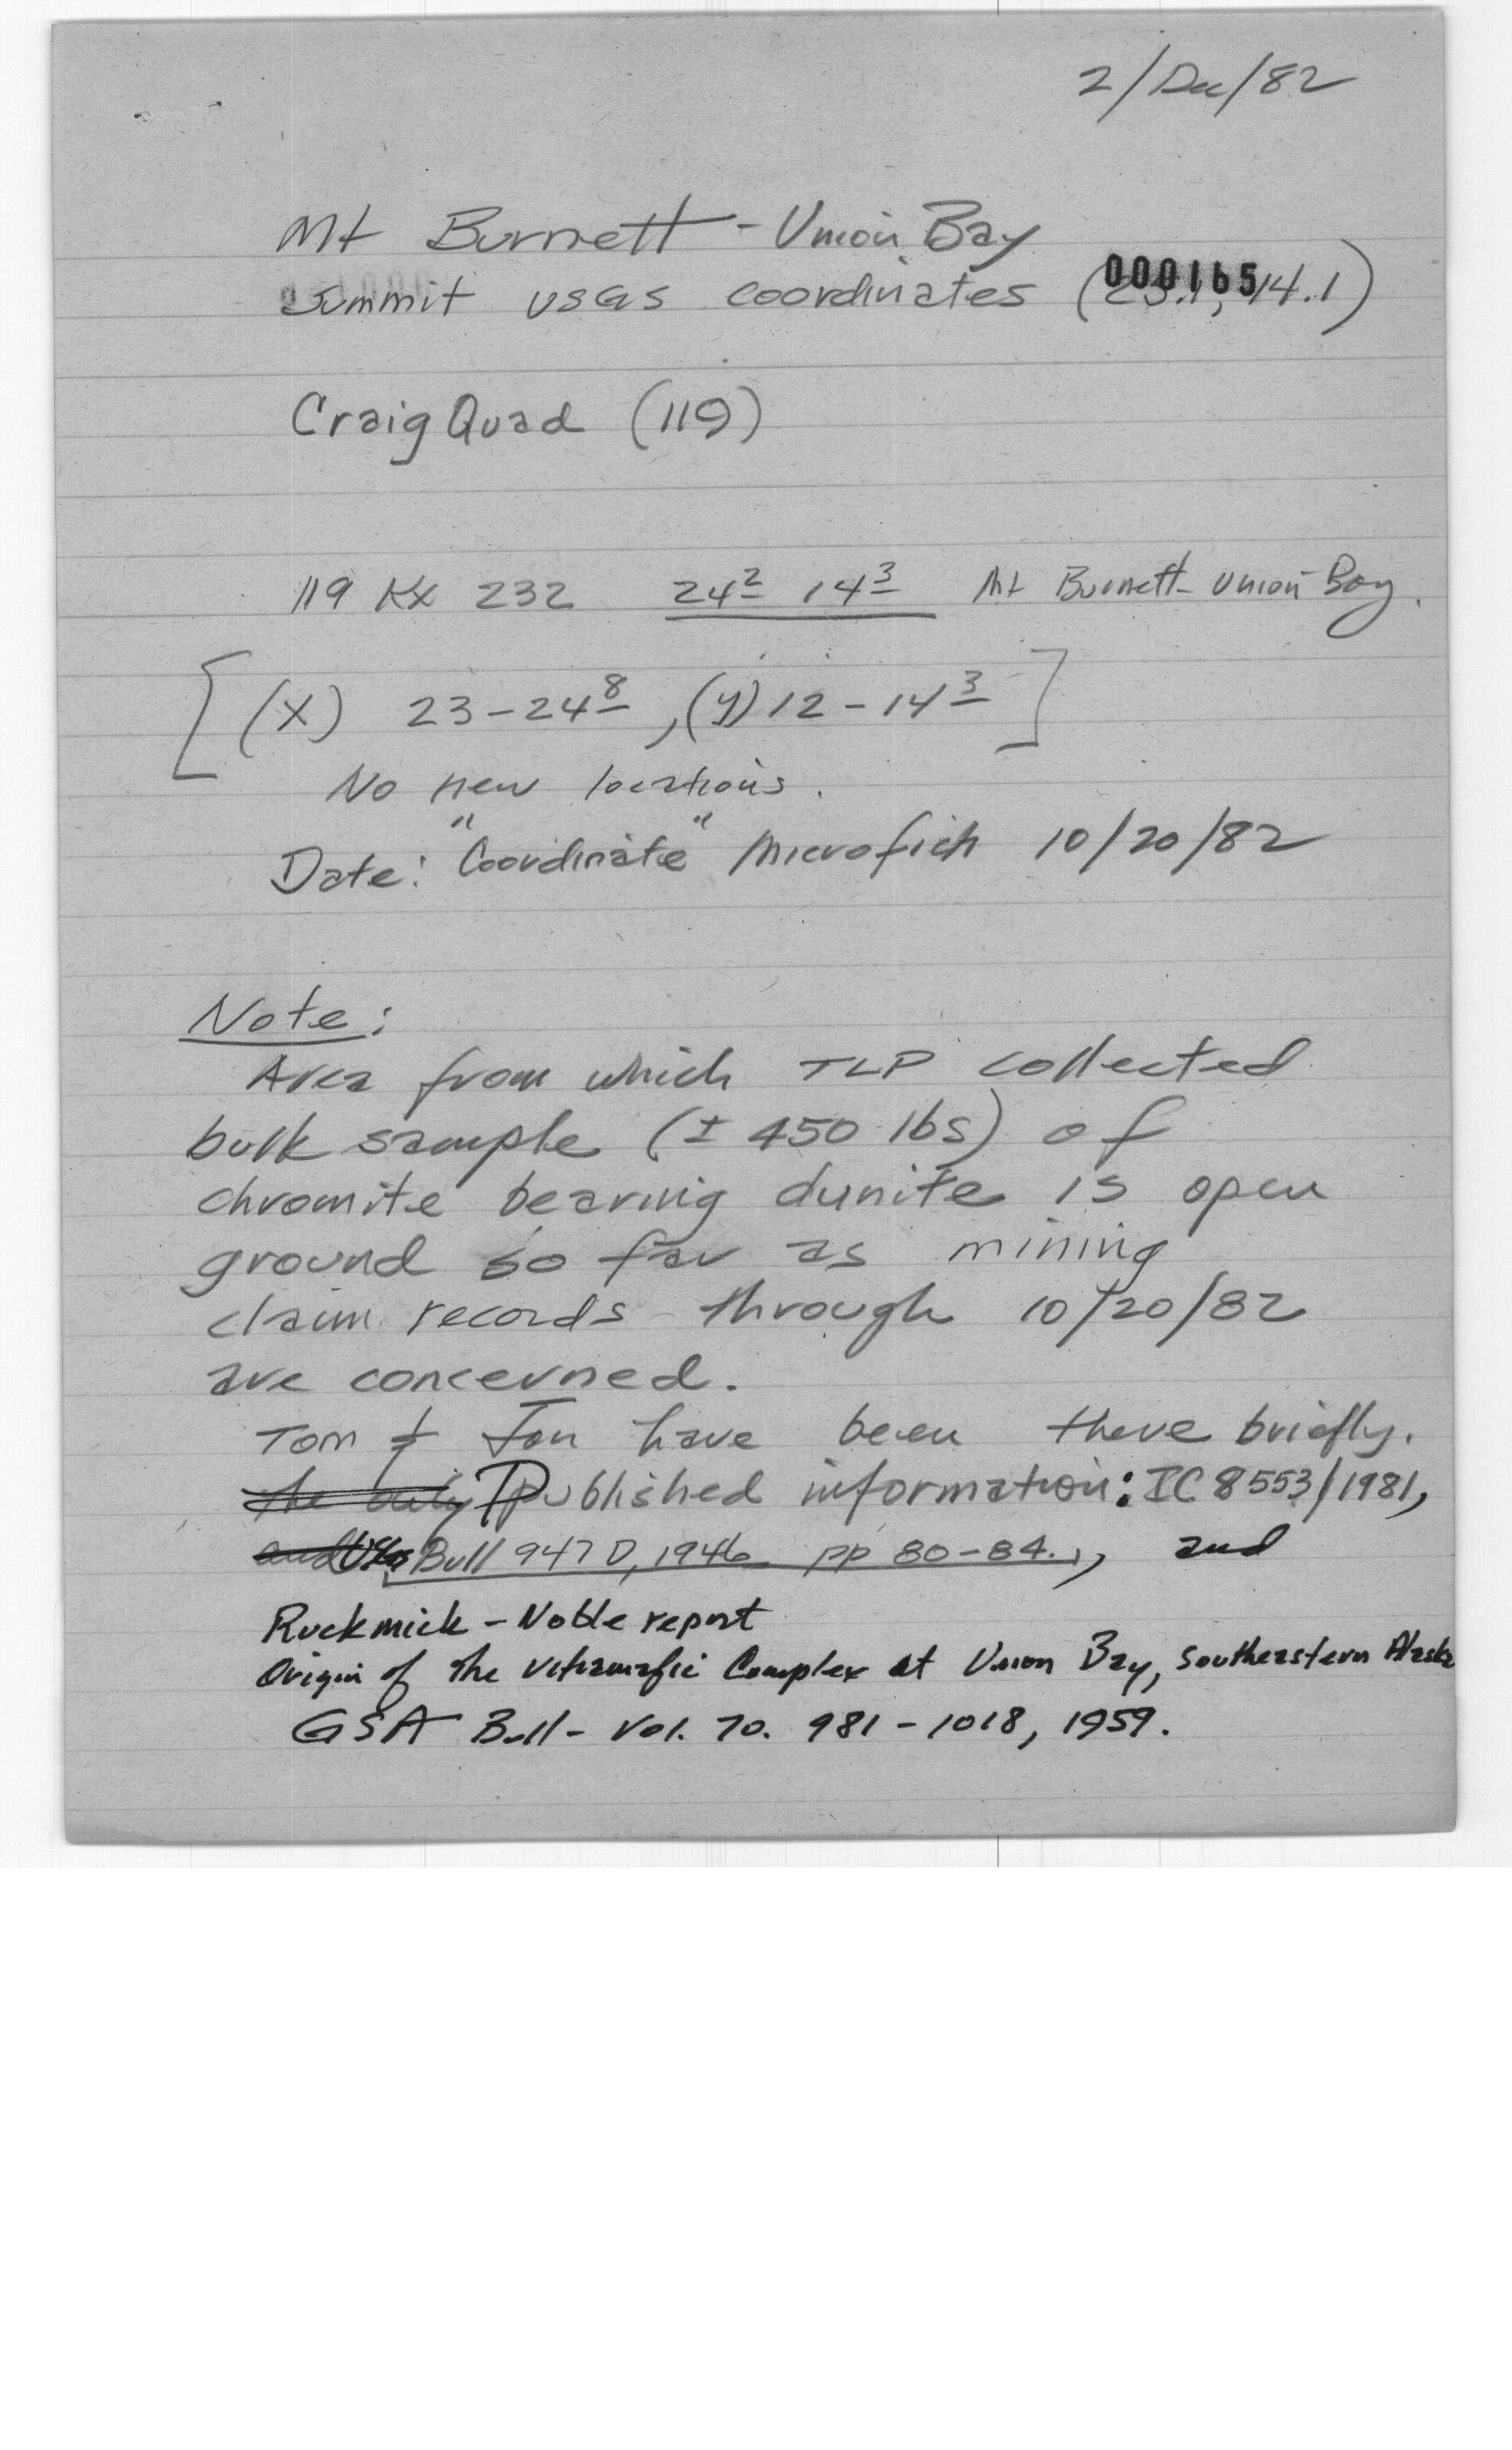 2/Dec/82
Mt Burnett - Union Bay
000165
Summit USGS coordinates (23.1, 14.1)
Craig Quad (119)
119 KX 232 24² 14³ Mt Burnett - Union Bay.
[(X) 23-24⁸, (y) 12-14³]
No new locations.
Date: "Coordinate" Microfich 10/20/82
Note:
Area from which TLP collected
bulk sample (± 450 lbs) of
chromite bearing dunite is open
ground so far as mining
claim records through 10/20/82
are concerned.
Tom & Jan have been there briefly.
the only Published information: IC 8553/1981,
and USGS Bull 947 D, 1946 pp 80-84., and
Ruckmick - Noble report
Origin of the Ultramafic Complex at Union Bay, Southeastern Alaska
GSA Bull - Vol. 70. 981-1018, 1959.